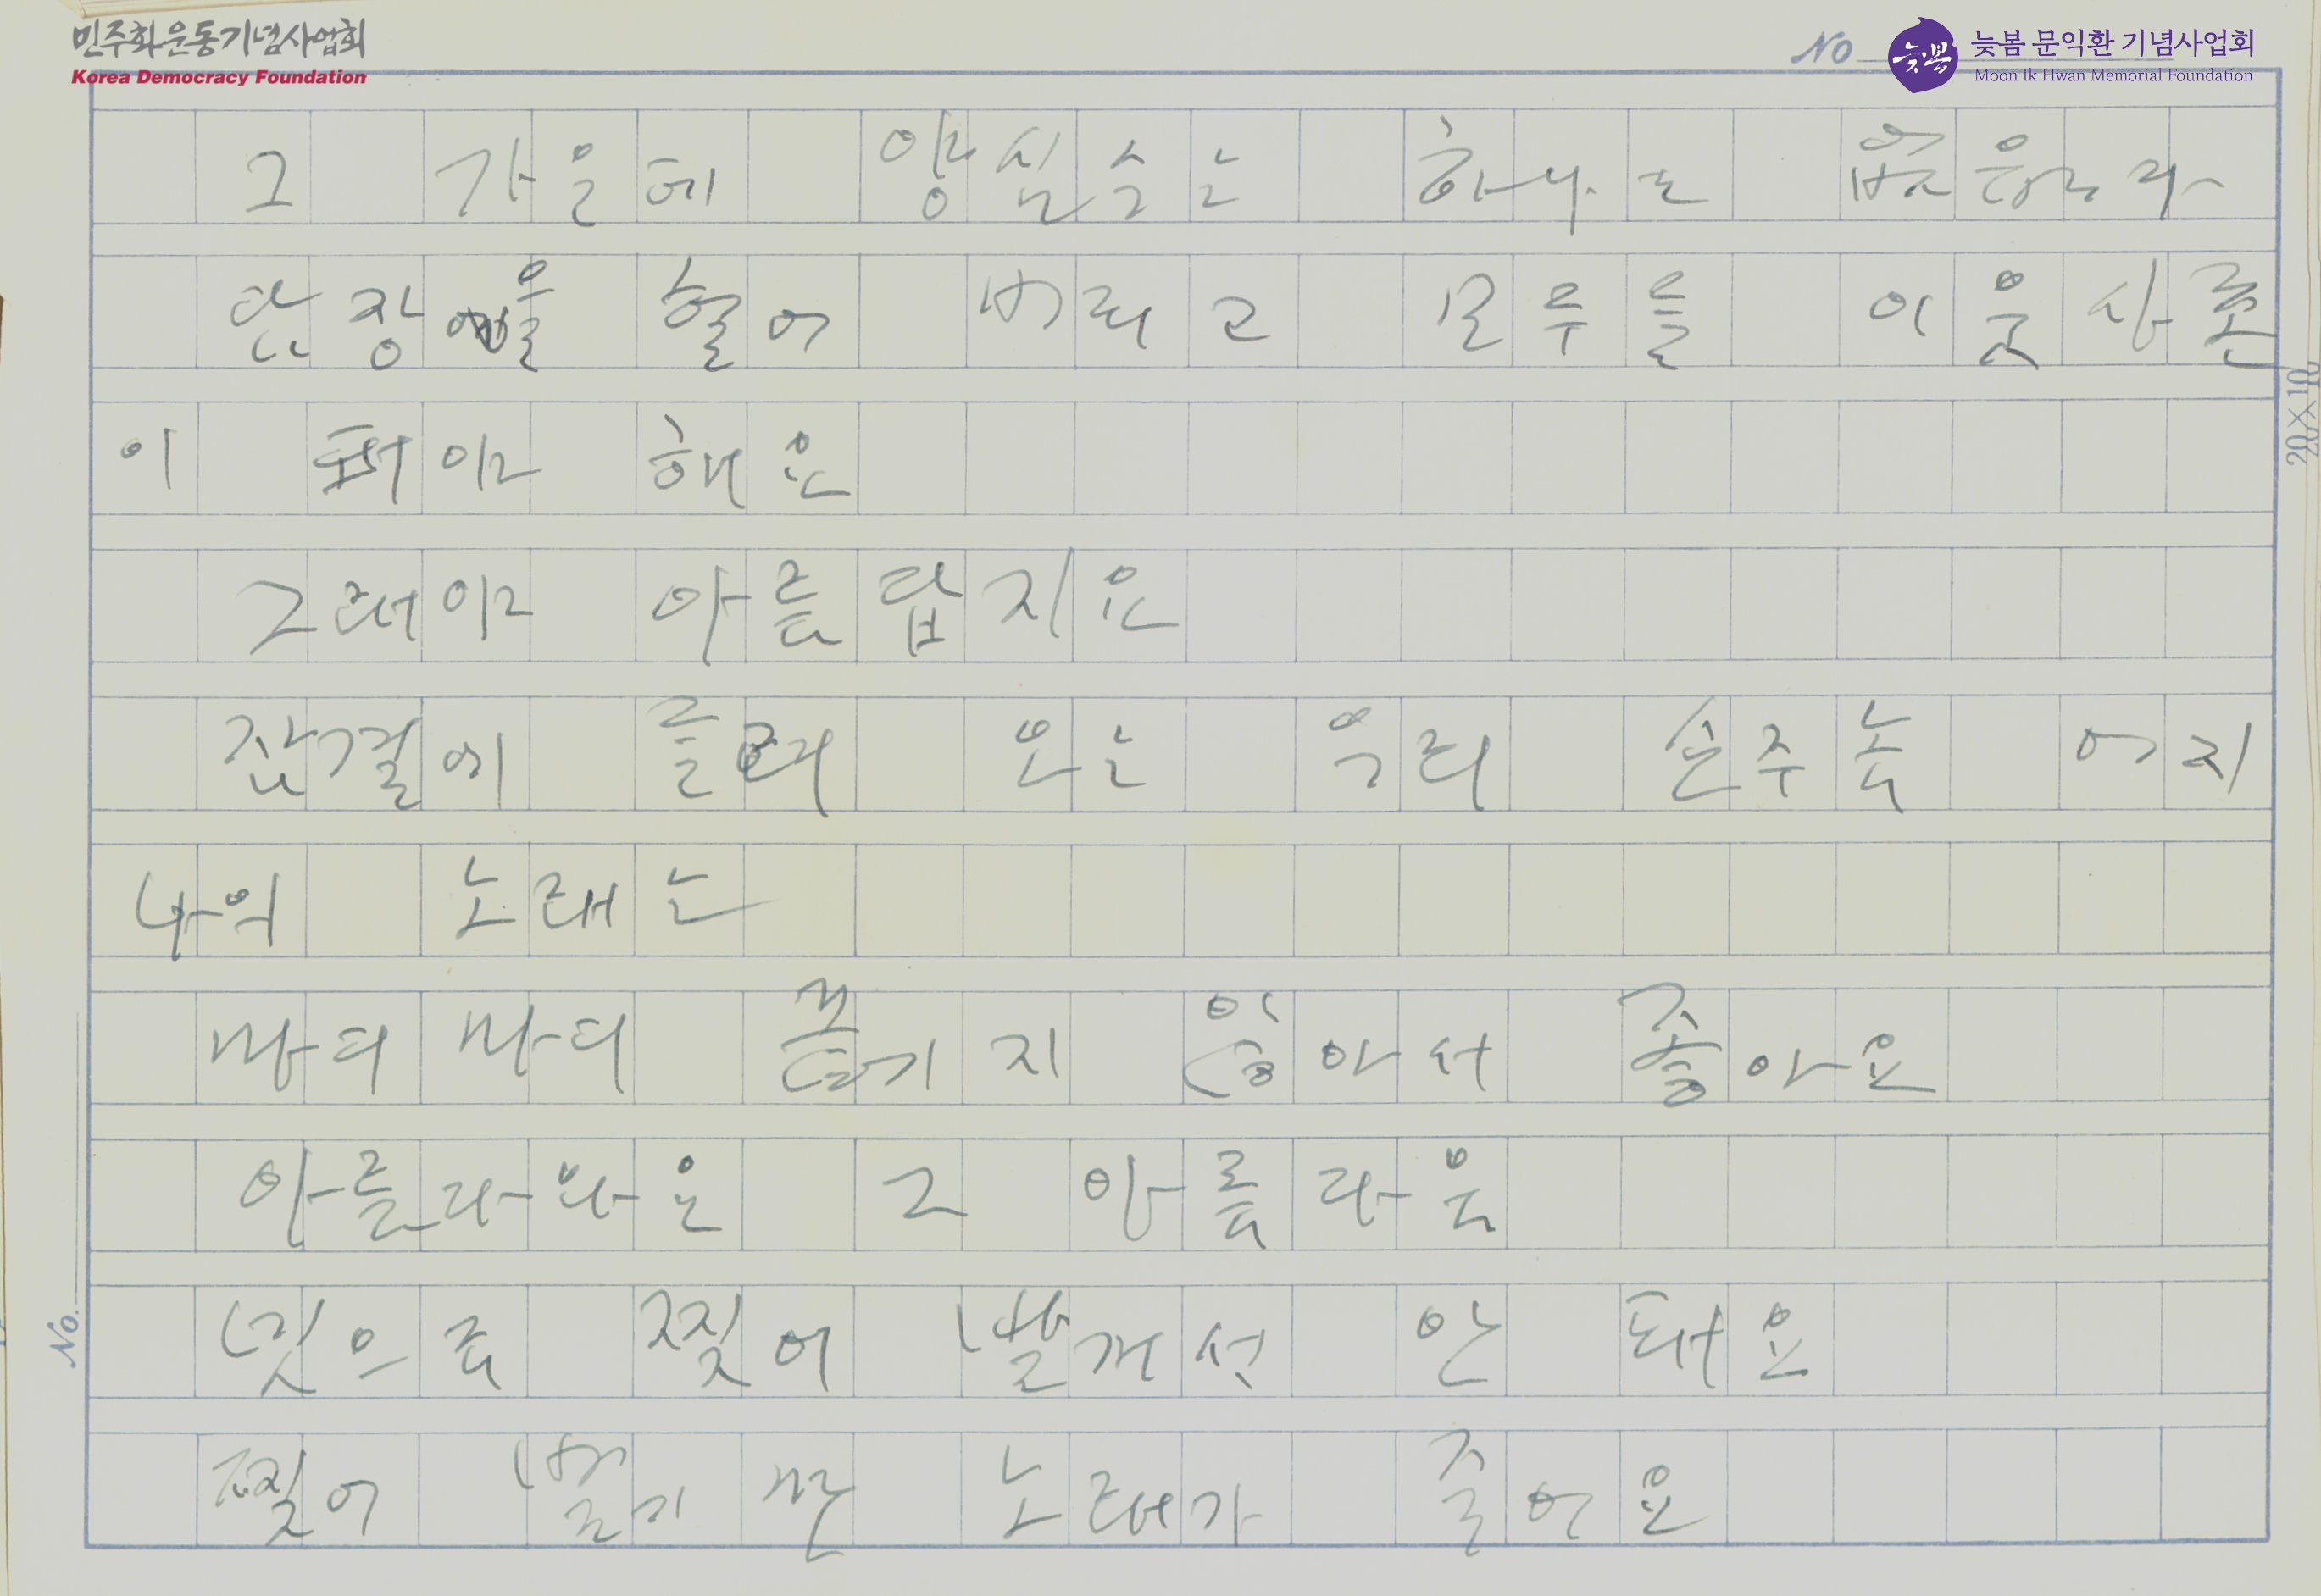 민주화운동기념사업회
Korea Democracy Foundation
No
늦봄 문익환 기념사업회
Moon Ik Hwan Memorial Foundation
그 가을에 양심수는 하나도 없습니다
담장을 헐어 버리고 모두들 이웃사촌
이 돼야 해요
그래야 아름답지요
잠결에 들려 오는 우리 손주놈 어지
나의 노래는
마디마디 끊기지 않아서 좋아요
아름다와온 그 아름다움
빗으로 찢어 발개선 안 돼요
찢어 발기는 노래가 좋어요
20×10
No.